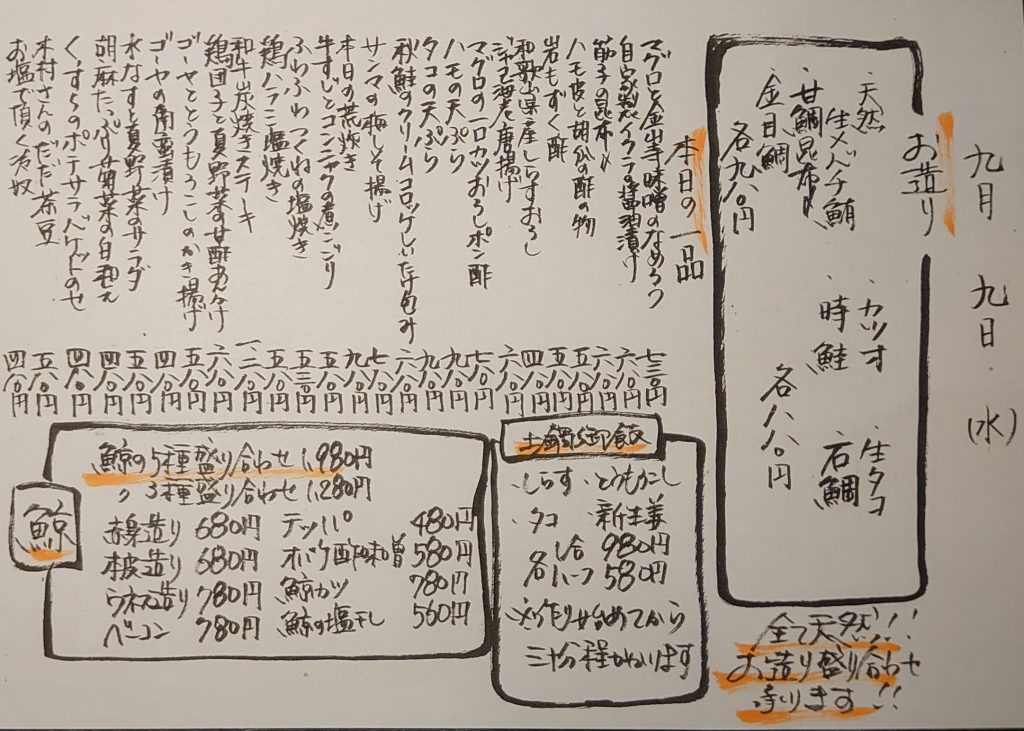 九月 九日 (水)
お造り
天然
・生メバチ鮪
・甘鯛昆布〆
・金目鯛
各九八〇円
・カツオ
・時鮭
・生タコ
・石鯛
各八八〇円
全て天然!!
お造り盛り合わせ
承ります!!
本日の一品
マグロと金山寺味噌のなめろう 七三〇円
自家製イクラの醤油漬け 六八〇円
筋子の昆布〆 六八〇円
ハモ皮と胡瓜の酢の物 五八〇円
岩もずく酢 四八〇円
和歌山県産しらすおろし 六八〇円
ジャコ海老唐揚げ
マグロの一口カツおろしポン酢 七八〇円
ハモの天ぷら 九八〇円
タコの天ぷら 九八〇円
秋鮭のクリームコロッケしいたけ包み 六八〇円
サンマの梅しそ揚げ 七八〇円
本日の荒炊き 九八〇円
牛すじとコンニャクの煮こごり 五八〇円
ふわふわつくねの塩焼き 五三〇円
鶏ハラミ塩焼き 五八〇円
和牛炭焼きステーキ
鶏団子と夏野菜の甘酢あんかけ 六八〇円
ゴーヤととうもろこしのかき揚げ 五八〇円
ゴーヤの南蛮漬け 四八〇円
水なすと夏野菜のサラダ 五八〇円
胡麻たっぷり菊菜の白和え 四八〇円
くずらのポテサラバゲットのせ 四八〇円
木村さんのだだ茶豆 五八〇円
お塩で頂く冷奴 四八〇円
土鍋御飯
・しらす ・とうもろこし
・タコ ・新生姜
各 一合 980円
各ハーフ 580円
※作り始めてから
三十分程かかります
鯨
鯨の5種盛り合わせ 1,980円
〃 3種盛り合わせ 1,280円
赤身造り 680円
本皮造り 680円
ウネス造り 780円
ベーコン 780円
テッパ 480円
オバケ酢味噌 580円
鯨カツ 780円
鯨の塩干し 560円